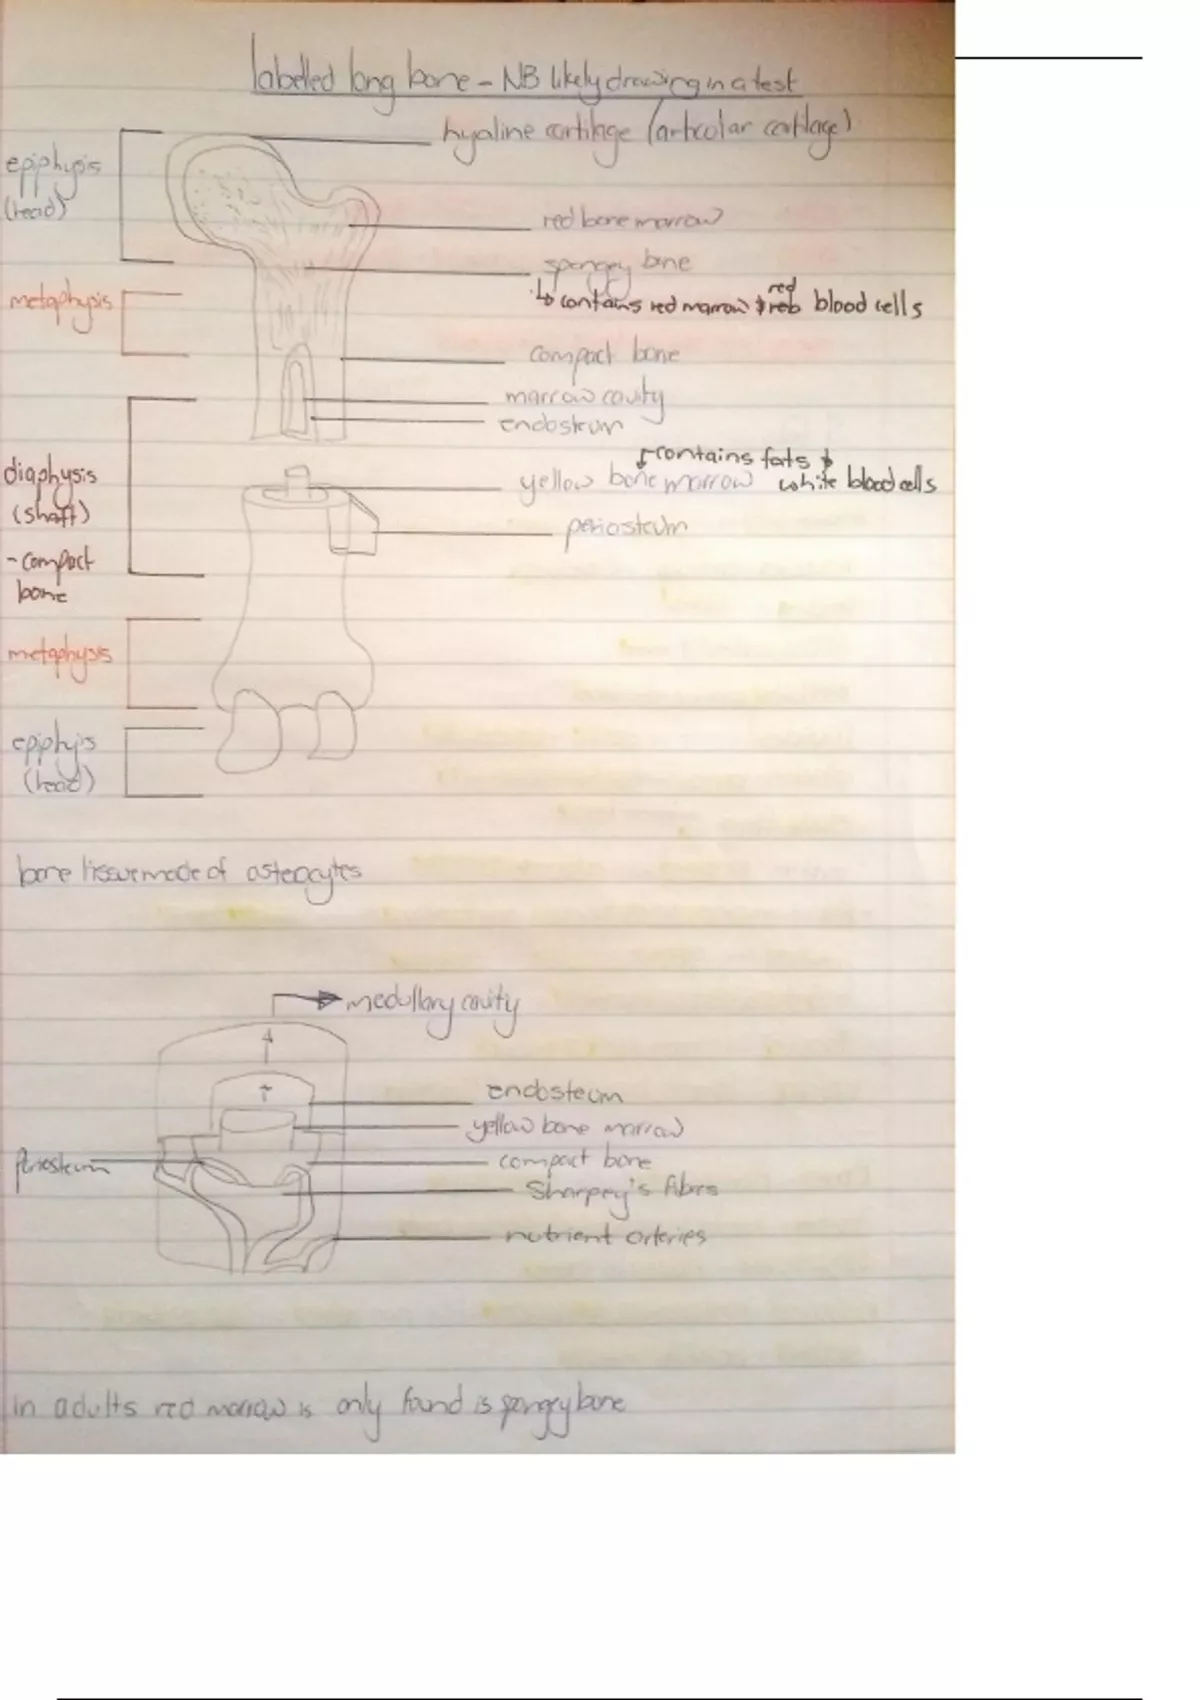 labelled long bone - NB likely drawing in a test
hyaline cartilage (articular cartilage)
epiphysis
(head)
red bone marrow
spongey bone
↳ contains red marrow & red blood cells
metaphysis
compact bone
marrow cavity
endosteum
contains fats &
white blood cells
yellow bone marrow
diaphysis
(shaft)
- compact
bone
periosteum
metaphysis
epiphyis
(head)
bone tissue made of osteocytes
medullary cavity
endosteum
yellow bone marrow
periosteum
compact bone
Sharpey's fibres
nutrient arteries
in adults red marrow is only found is spongey bone